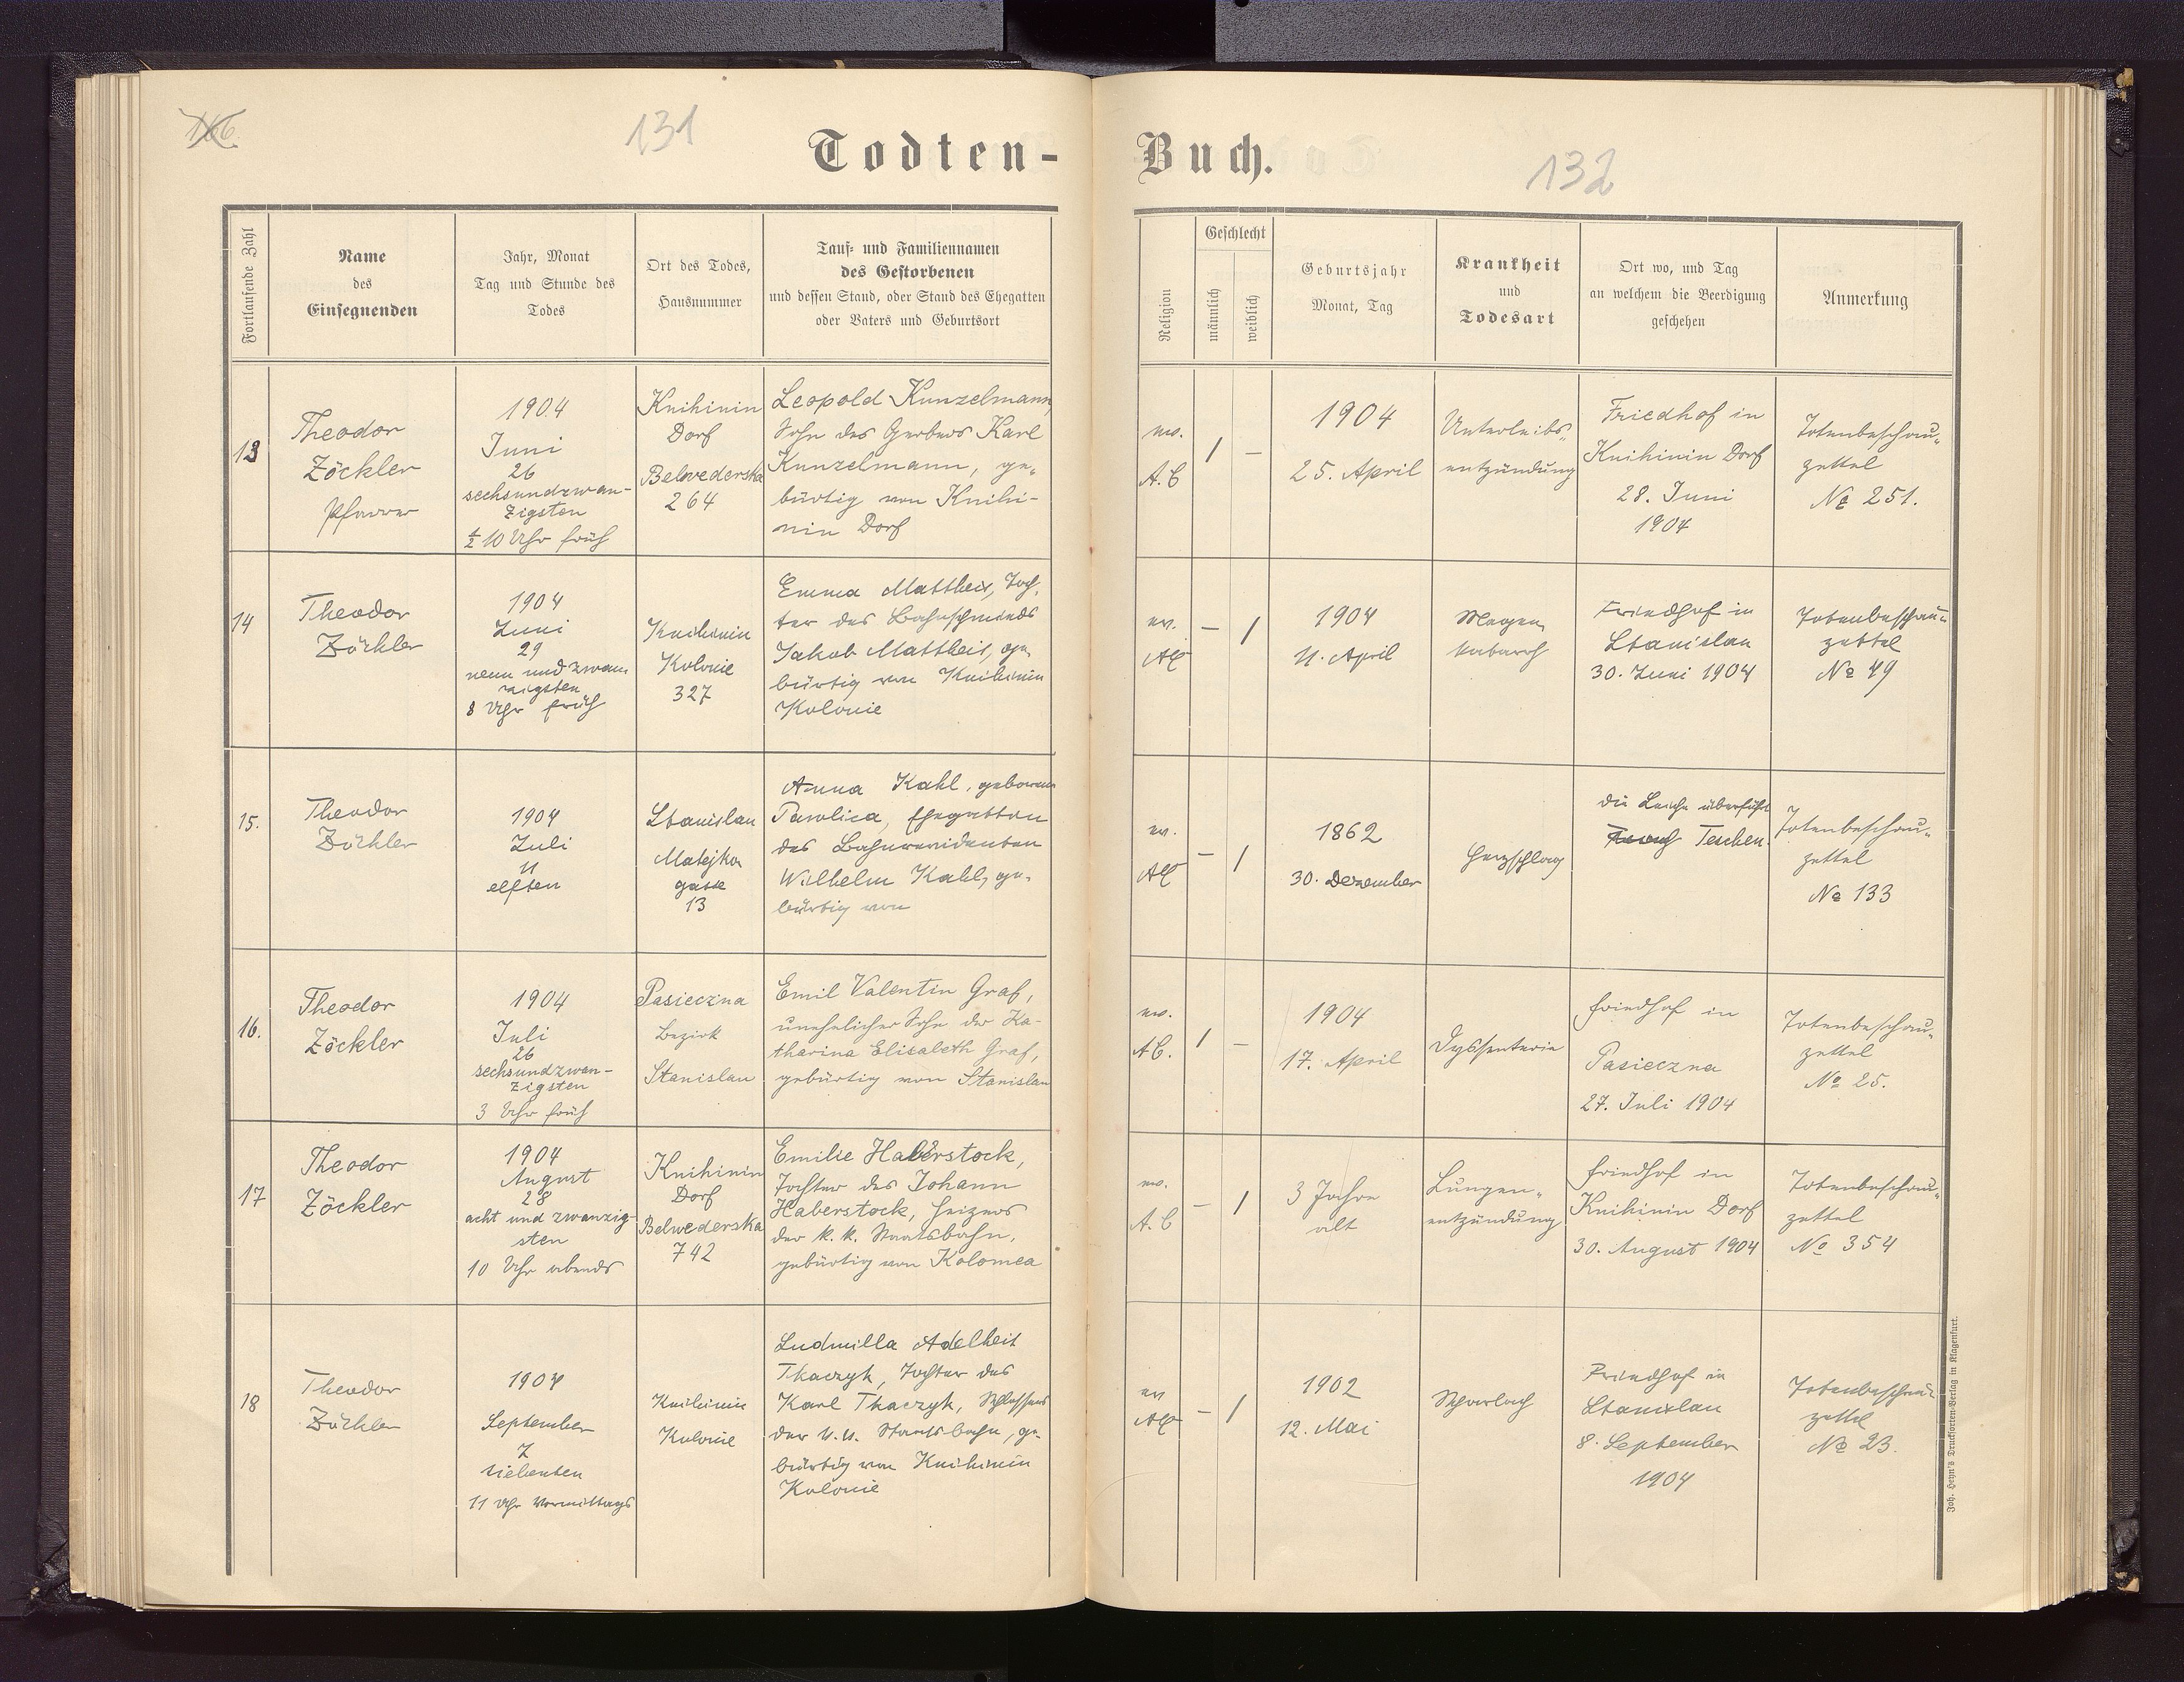 166.
131
Todten-
Buch.
132
Fortlaufende Zahl
Name
des
Einsegnenden
Jahr, Monat
Tag und Stunde des
Todes
Ort des Todes,
Hausnummer
Tauf- und Familiennamen
des Gestorbenen
und dessen Stand, oder Stand des Ehegatten
oder Vaters und Geburtsort
Religion
Geschlecht
männlich
weiblich
Geburtsjahr
Monat, Tag
Krankheit
und
Todesart
Ort wo, und Tag
an welchem die Beerdigung
geschehen
Anmerkung
13
Theodor
Zöckler
Pfarrer
1904
Juni
26
sechsundzwan-
zigsten
½ 10 Uhr früh
Knihinin
Dorf
Belwederska
264
Leopold Kunzelmann,
Sohn des Gerbers Karl
Kunzelmann, ge-
bürtig von Knihi-
nin Dorf
ev.
A.C
/
–
1904
25. April
Unterleibs-
entzündung
Friedhof in
Knihinin Dorf
28. Juni
1904
Totenbeschau-
zettel
№ 251.
14
Theodor
Zöckler
1904
Juni
29
neun und zwan
zigsten
8 Uhr früh
Knihinin
Kolonie
327
Emma Mattheis, Toch-
ter des Bahnschmieds
Jakob Mattheis, ge-
bürtig von Knihinin
Kolonie
ev.
AC
–
/
1904
11. April
Magen
katarrh
Friedhof in
Stanislau
30. Juni 1904
Totenbeschau-
zettel
№ 49
15.
Theodor
Zöckler
1904
Juli
11
elften
Stanislau
Matejko
gasse
13
Anna Kahl, geborene
Pawlica, Ehegattin
des Bahnrevidenten
Wilhelm Kahl, ge-
bürtig von
ev.
AC
–
/
1862
30. Dezember
Herzschlag
die Leiche überführt
nach Teschen.
Totenbeschau-
zettel
№ 133
16.
Theodor
Zöckler
1904
Juli
26
sechsundzwan-
zigsten
3 Uhr früh
Pasieczna
Bezirk
Stanislau
Emil Valentin Graf,
unehelicher Sohn der Ka-
tharina Elisabeth Graf,
gebürtig von Stanislau
ev.
A.C.
/
–
1904
17. April
Dyssenterie
Friedhof in
Pasieczna
27. Juli 1904
Totenbeschau-
zettel
№ 25.
17
Theodor
Zöckler
1904
August
28
acht und zwanzig-
sten
10 Uhr abends
Knihinin
Dorf
Belwederska
742
Emilie Haberstock,
Tochter des Johann
Haberstock, Heizers
der k. k. Staatsbahn,
gebürtig von Kolomea
ev.
A.C
–
/
3 Jahre
alt
Lungen-
entzündung
Friedhof in
Knihinin Dorf
30. August 1904
Totenbeschau-
zettel
№ 354
18
Theodor
Zöckler
1904
September
7
siebenten
11 Uhr Vormittags
Knihinin
Kolonie
Ludmilla Adelheit
Tkaczyk, Tochter des
Karl Tkaczyk, Schlossers
der k.k. Staatsbahn, ge-
bürtig von Knihinin
Kolonie
ev
AC
–
/
1902
12. Mai
Scharlach
Friedhof in
Stanislau
8. September
1904
Totenbeschau-
zettel
№ 23.
Joh. Heyn's Drucksorten-Verlag in Klagenfurt.